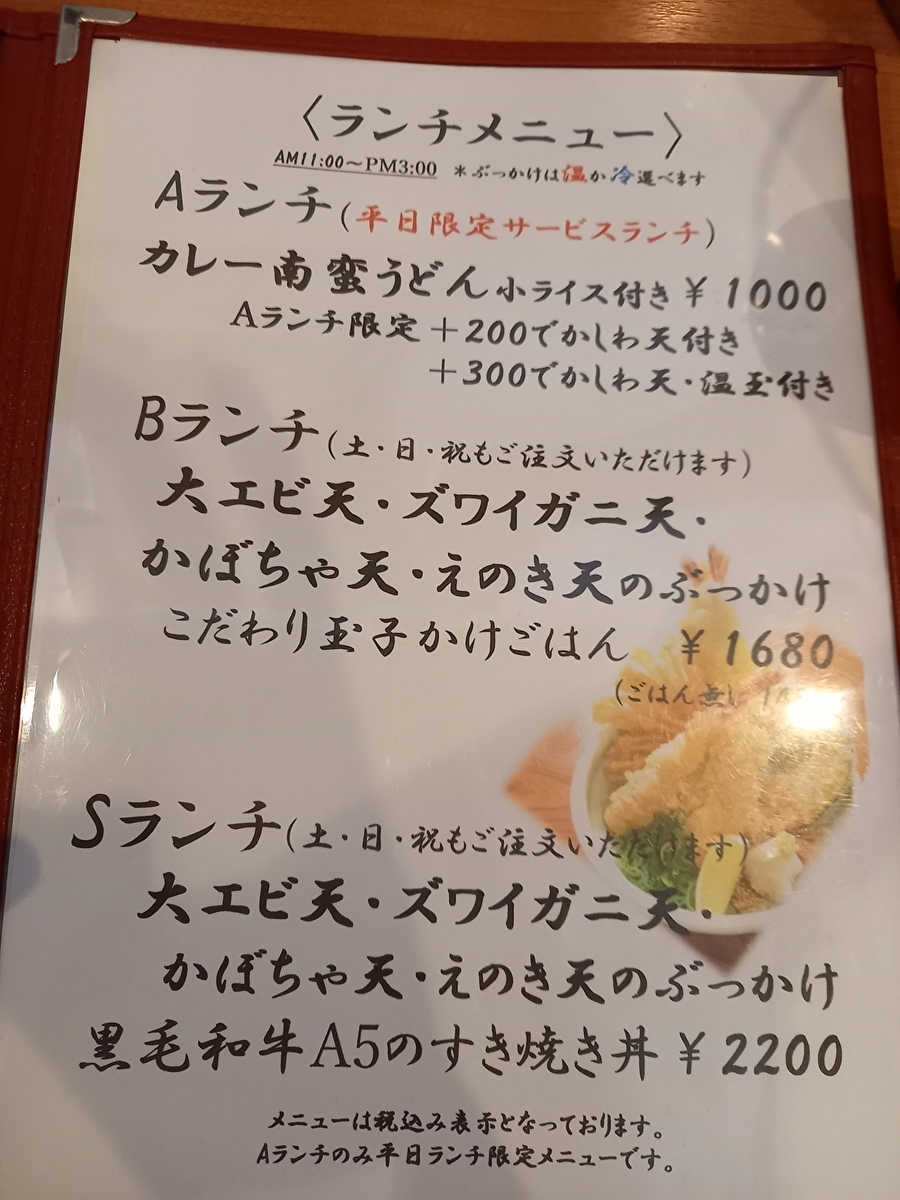 〈ランチメニュー〉
AM11:00～PM3:00 ＊ぶっかけは温か冷選べます
Aランチ(平日限定サービスランチ)
カレー南蛮うどん小ライス付き￥1000
Aランチ限定＋200でかしわ天付き
＋300でかしわ天・温玉付き
Bランチ(土・日・祝もご注文いただけます)
大エビ天・ズワイガニ天・
かぼちゃ天・えのき天のぶっかけ
こだわり玉子かけごはん ￥1680
(ごはん無し
Sランチ(土・日・祝もご注文いただけます)
大エビ天・ズワイガニ天・
かぼちゃ天・えのき天のぶっかけ
黒毛和牛A5のすき焼き丼￥2200
メニューは税込み表示となっております。
Aランチのみ平日ランチ限定メニューです。